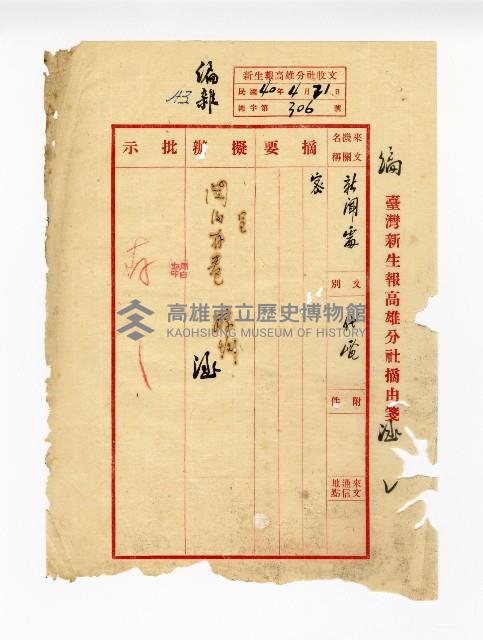 編雜
新生報高雄分社收文
民國40年4月21日
總字第306號
編
臺灣新生報高雄分社摘由箋
來文機關名稱
新聞處
文別
代電
附件
來文通信地點
摘要
密
擬辦
呈
閱後存卷
批示
存
高雄市立歷史博物館
KAOHSIUNG MUSEUM OF HISTORY